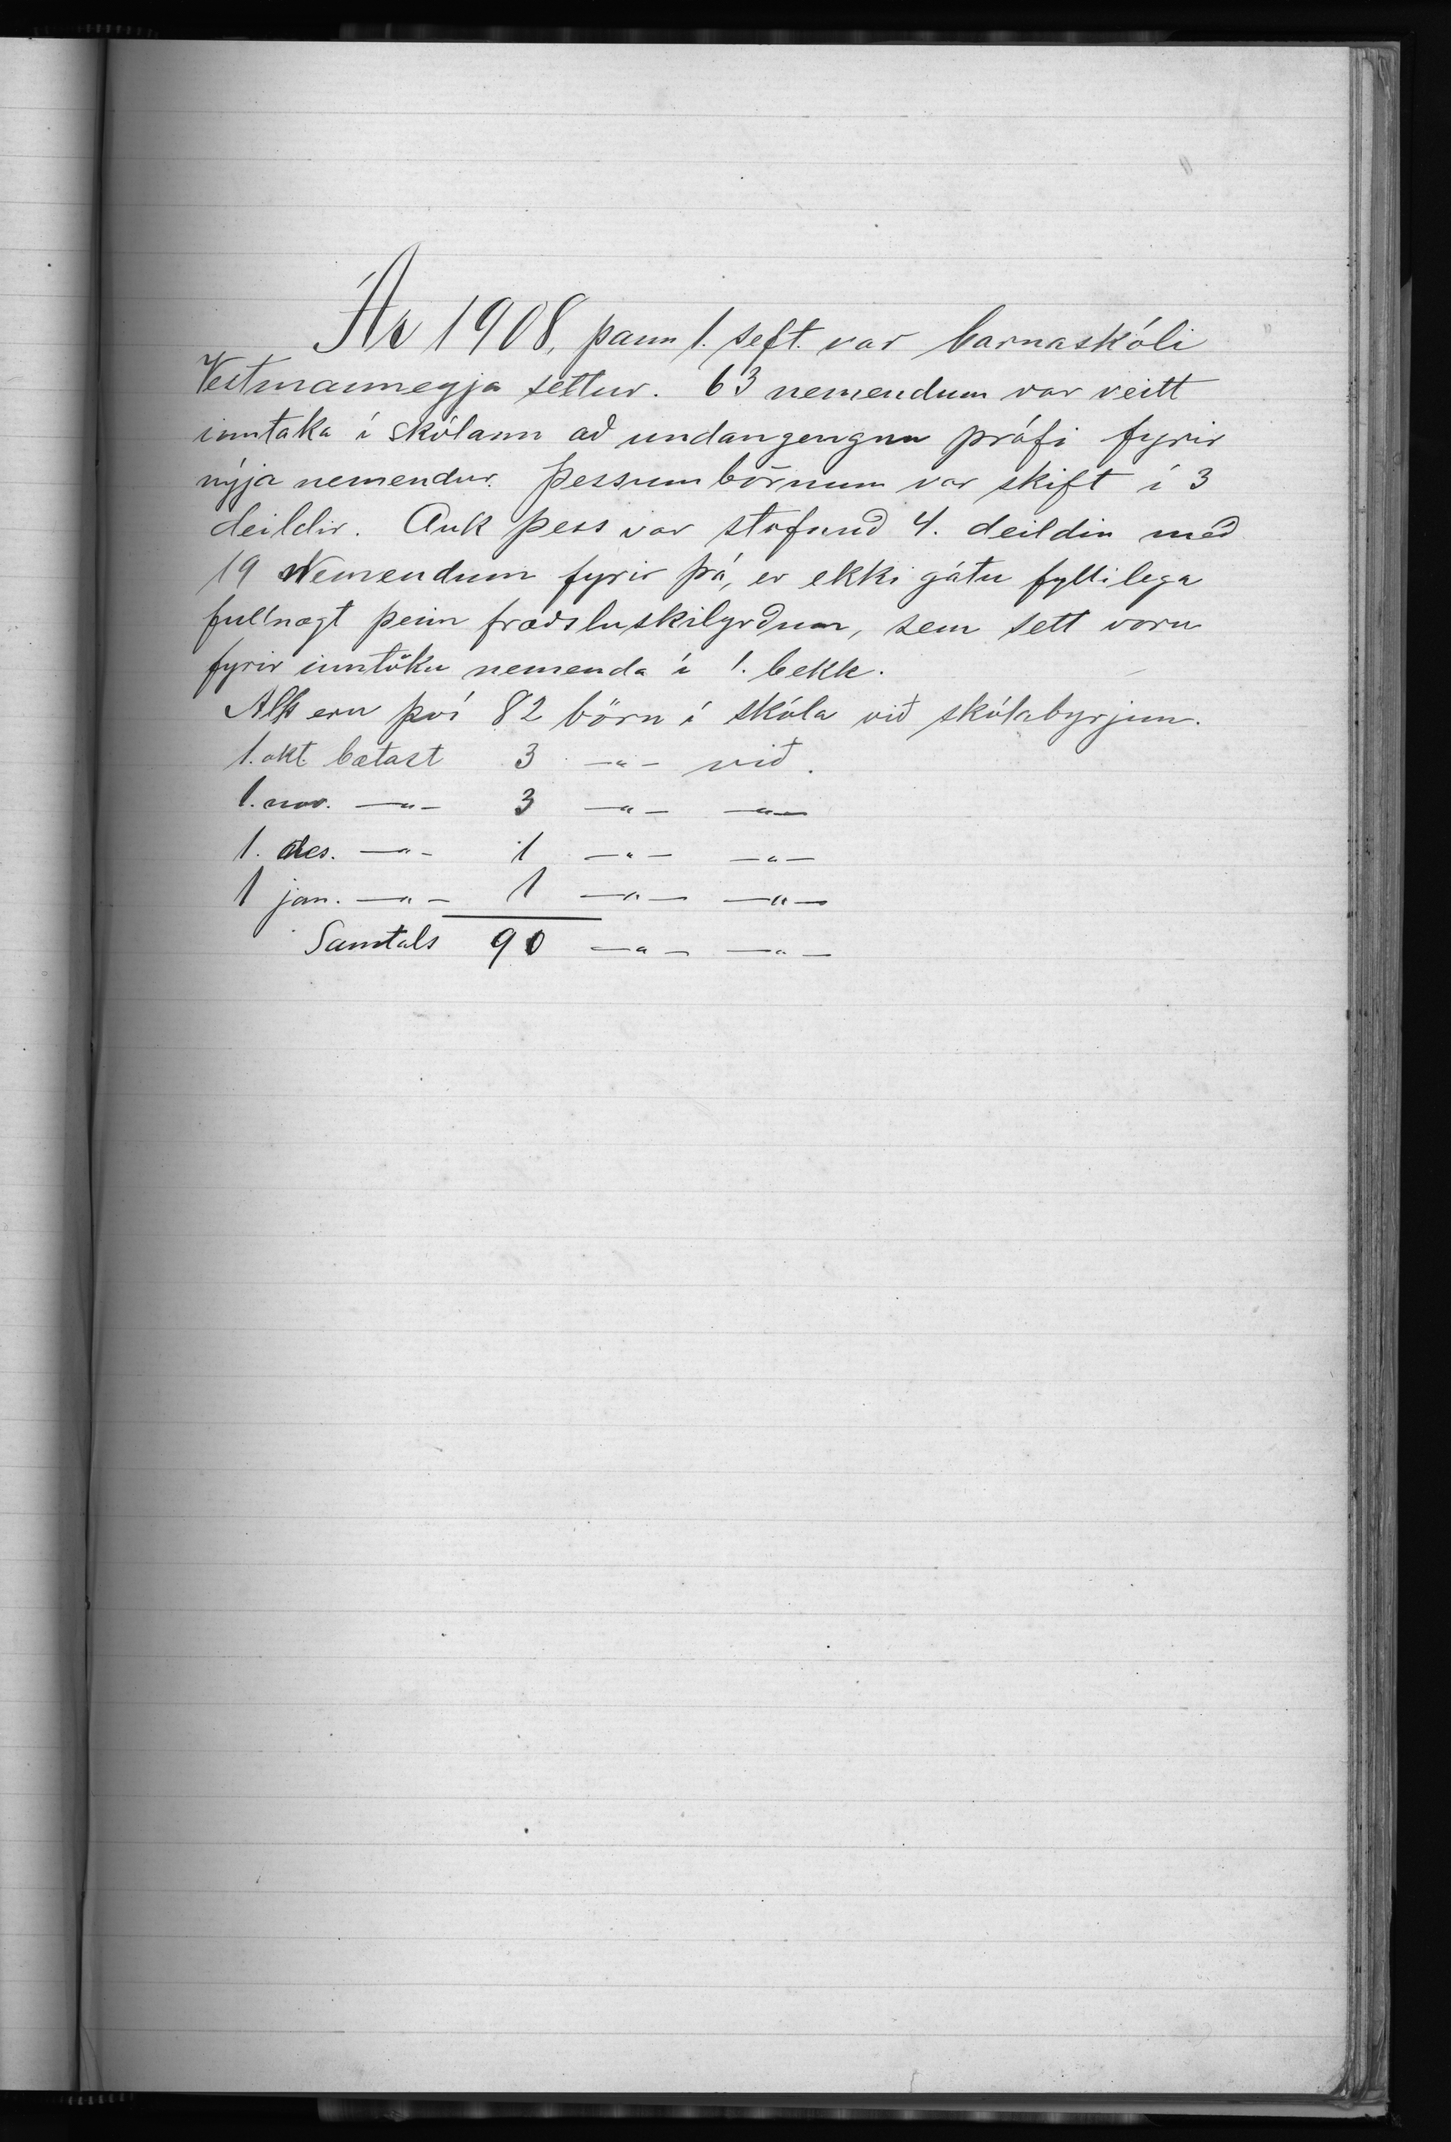 Ár 1908, þann 1. seft. var barnaskóli
Vestmannegja settur. 63 nemendum var veitt
inntaka í skólann að undangengnu prófi fyrir
nýja nemendur. Þessum börnum var skift í 3
deildir. Auk þess var stofnuð 4. deildin með
19 Nemendum fyrir þá, er ekki gátu fyllilega
fullnægt þeim fræðsluskilyrðum, sem sett voru
fyrir inntöku nemenda í 1. bekk.
Alls eru því 82 börn í skóla við skólabyrjun.
1. okt. bætast 3 —"— við.
1. nov. —"— 3 —"— —"—
1. des. —"— 1 —"— —"—
1 jan. —"— 1 —"— —"—
Samtals 90 —"— —"—